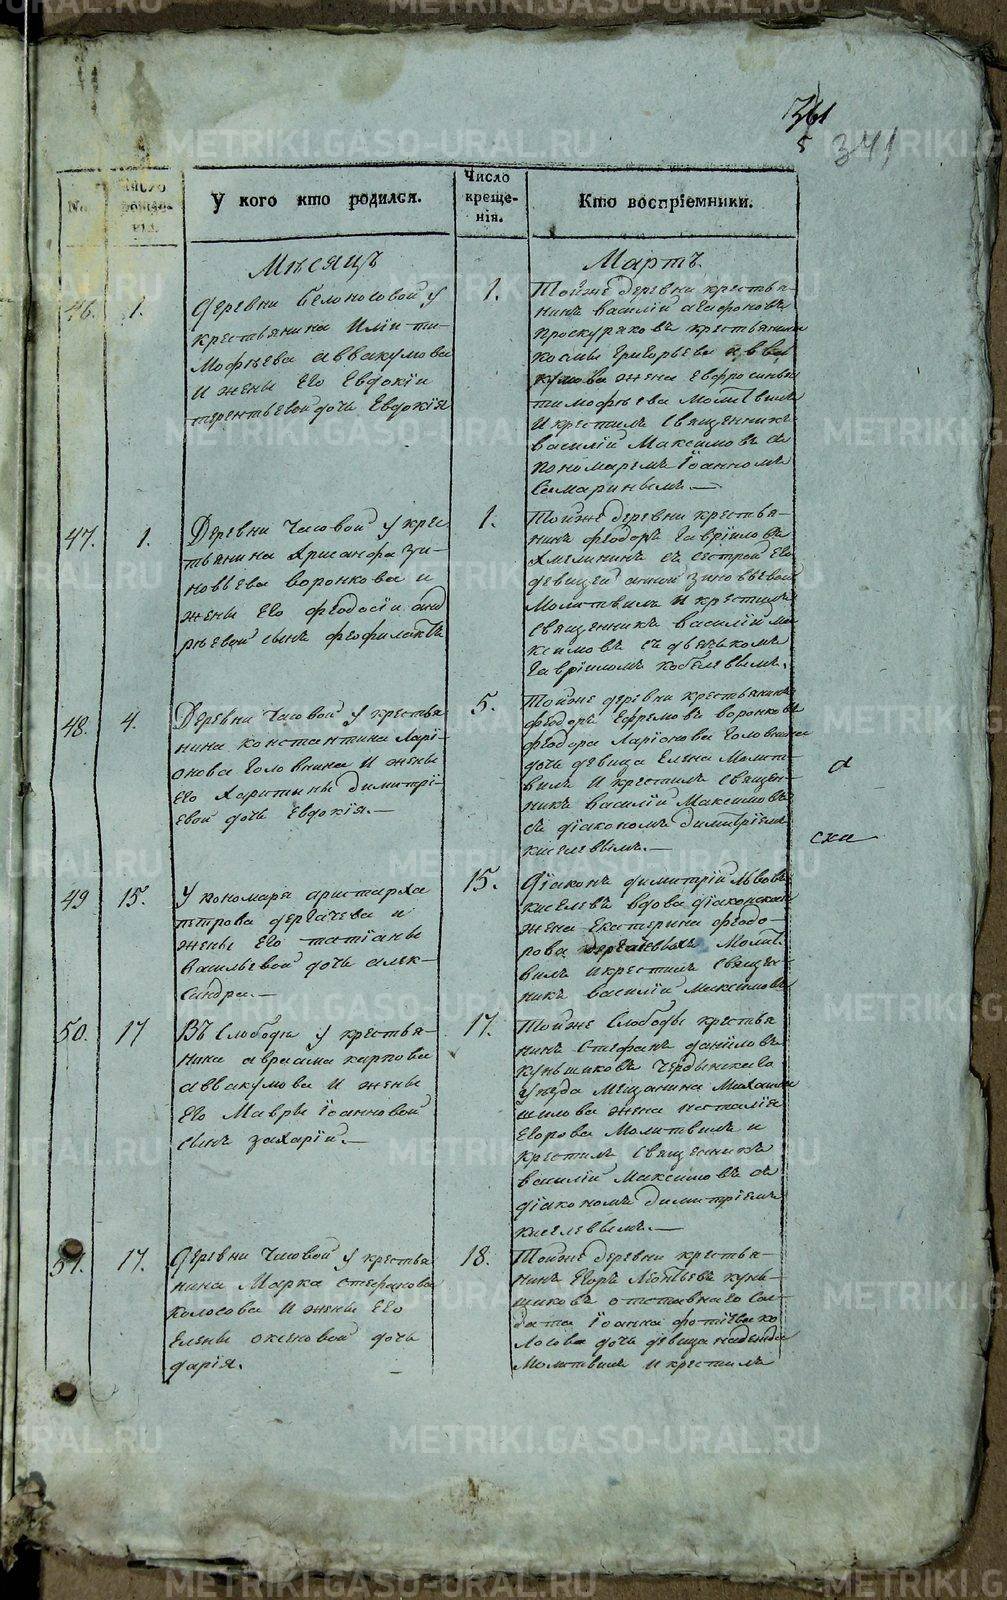 361
5
341
№
Число рожде-нія.
У кого кто родился.
Число креще-нія.
Кто воспріемники.
Мѣсяцъ
Мартъ
46.
1.
Деревни белоносовой у
крестьянина Иліи ти-
мофѣева аввакумова
И жены Его Евдокіи
терентьевой дочь Евдокія
1.
Тойже деревни крестья-
нинъ василій агафоновъ
проскуряковъ крестьянина
космы григорьева авва
кумова жена Евфросинья
тимофѣева Молитвилъ
И крестилъ священникъ
василій Максимовъ съ
пономаремъ Іоанномъ
Самаринымъ.
47.
1.
Деревни Часовой у крес
тьянина Хрисанфа зи-
новьева воронкова и
жены Его феодосіи анд
рѣевой сынъ феофилактъ
1.
Тойже деревни крестья-
нинъ феодоръ гавріиловъ
Хмелининъ съ сестрой Его
девицей анной зиновьевой
Молитвилъ И крестилъ
священникъ василій Ма
ксимовъ съ дьячькомъ
гавріиломъ кобелевымъ.
48.
4.
Деревни Часовой у крестья
нина константина Ларі-
онова головнина И жены
Его Харитины димитрі-
евой дочь Евдокія.
5.
Тойже деревни крестьянинъ
феодоръ Ефремовъ воронковъ
феодора Ларіонова головнина
дочь девица Елена Молит-
вилъ И крестилъ священ-
никъ василій Максимовъ
съ діакономъ димитріемъ
киселевымъ.
49
15.
У пономаря аристарха
петрова дергачева и
жены Его татіаны
васильевой дочь алек-
сандра.
15.
Діаконъ димитрій Львовъ
киселевъ вдова діаконская
жена Екатерина феодо-
рова Молит
вилъ И крестилъ священ-
никъ василій Максимовъ
50.
17
Въ слободѣ у крестья-
нина авраама карпова
аввакумова И жены
Его Мавры Іоанновой
сынъ захарій.
17.
Тойже слободы крестья
нинъ стефанъ даніиловъ
куньщиковъ Чердынскаго
уѣзда мещанина Михаила
шилова жена наталія
Егорова Молитвилъ и
крестилъ священникъ
василій Максимовъ съ
діакономъ димитріемъ
киселевымъ.
51.
17.
Деревни Часовой у крестья
нина Марка стефанова
колосова И жены Его
Елены оксеновой дочь
дарія.
18.
Тойже деревни крестья-
нинъ Егоръ Леонтьевъ кунь-
щиковъ отставнаго сол-
дата Іоанна фотіева ко
лосова дочь девица надежда
Молитвилъ И крестилъ
METRIKI.GASO-URAL.RU